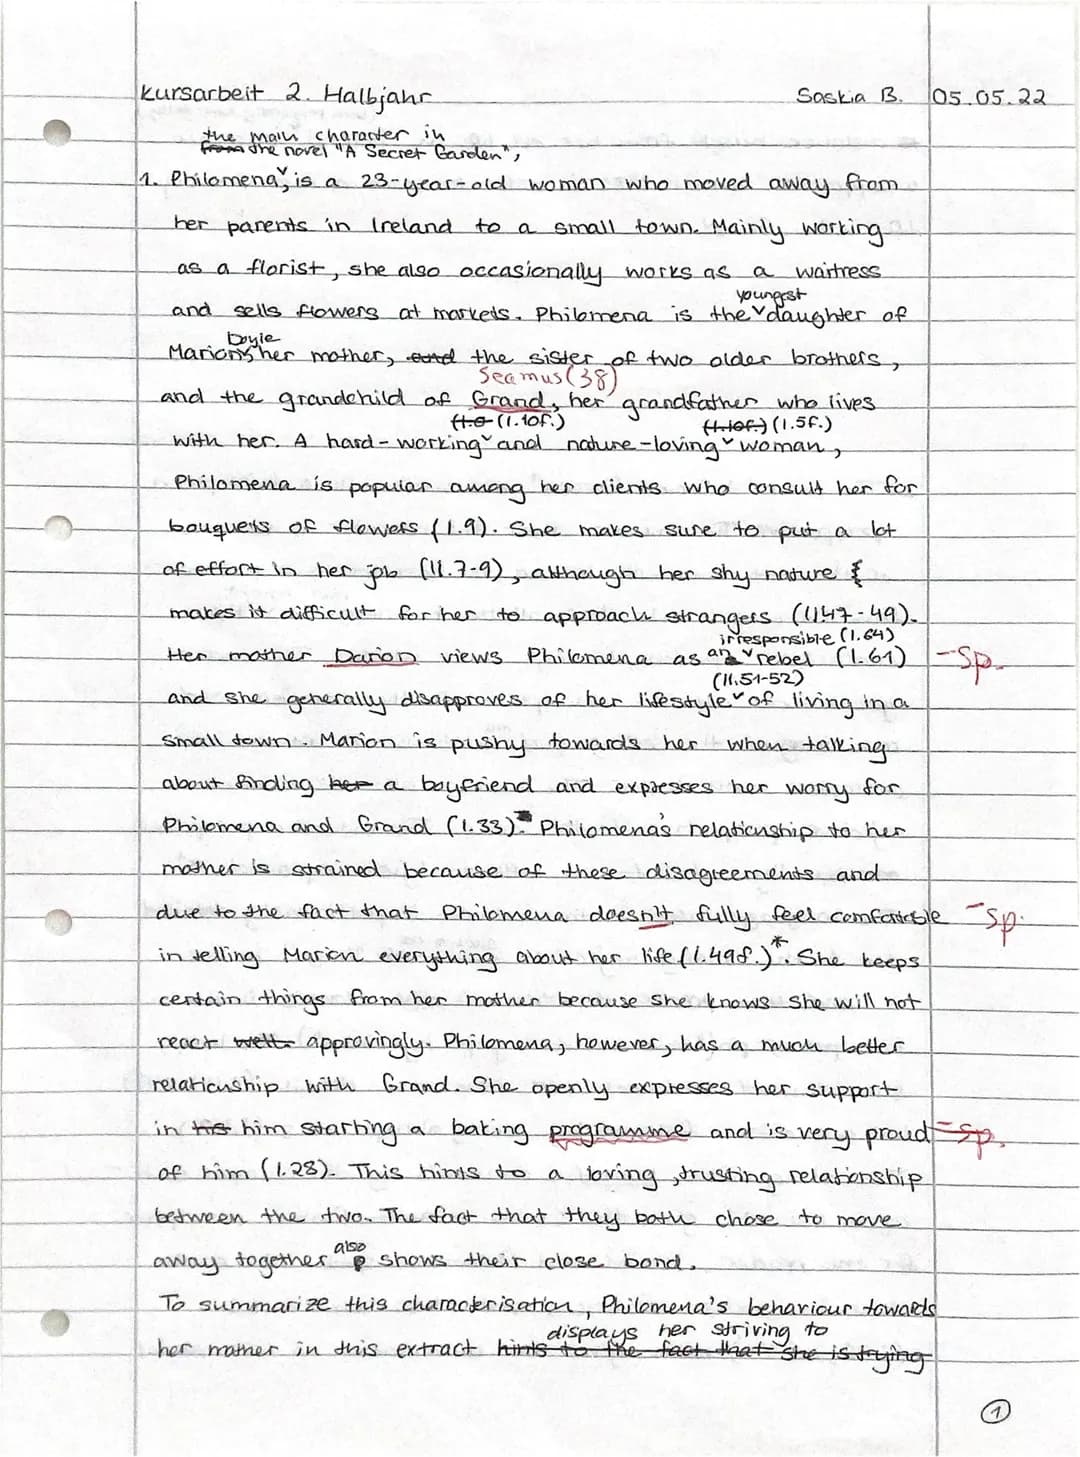 Kursarbeit 2. Halbjahr Saskia B. 05.05.22
the main character in
from the novel "A Secret Garden",
1. Philomena, is a 23-year-old woman who moved away from
her parents in Ireland to a small town. Mainly working
as a florist, she also occasionally works as a waitress
youngest
and sells flowers at markets. Philomena is the daughter of
Doyle
Marion, her mother, and the sister of two older brothers,
Seamus (38)
and the grandchild of Grand, her grandfather who lives
(l.10f.) (l.10f.) (l.5f.)
with her. A hard-working and nature-loving woman,
Philomena is popular among her clients who consult her for
bouquets of flowers (l.9). She makes sure to put a lot
of effort in her job (ll.7-9), although her shy nature
makes it difficult for her to approach strangers (ll.47-49).
irresponsible (l.64)
Her mother Darion views Philomena as an rebel (l.61) -Sp.
(ll.51-52)
and she generally disapproves of her lifestyle of living in a
small town. Marion is pushy towards her when talking
about finding her a boyfriend and expresses her worry for
Philomena and Grand (l.33). Philomena's relationship to her
mother is strained because of these disagreements and
due to the fact that Philomena does'nt fully feel comfortable -Sp.
in telling Marion everything about her life (l.49f.)*. She keeps
certain things from her mother because she knows she will not
react well. approvingly. Philomena, however, has a much better
relationship with Grand. She openly expresses her support
in his him starting a baking programme and is very proud -Sp.
of him (l.28). This hints to a loving, trusting relationship
between the two. The fact that they both chose to move
also
away together shows their close bond.
To summarize this characterisation, Philomena's behaviour towards
displays her striving to
her mother in this extract hints to the fact that she is trying
1